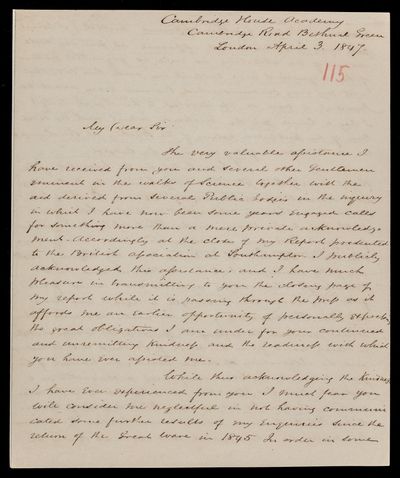 Cambridge House Academy
Cambridge Road Bethnal Green
London April 3. 1847
115
My Dear Sir
The very valuable assistance I
have received from you and several other Gentlemen
eminent in the walks of Science together with the
aid derived from several Public bodies in the inquiry
in which I have now been some years engaged calls
for something more than a mere private acknowledg-
ment. Accordingly at the close of my Report presented
to the British Association at Southampton I publicly
acknowledged this assistance, and I have much
pleasure in transmitting to you the closing page of
my report while it is passing through the press as it
affords me an earlier opportunity of personally expressing
the great obligations I am under for your continued
and unremitting kindness and the readiness with which
you have ever assisted me.
While thus acknowledging the kindness
I have ever experienced from you I much fear you
will consider me neglectful in not having communi
cated some further results of my enquiries since the
return of the Great Wave in 1845 In order in some